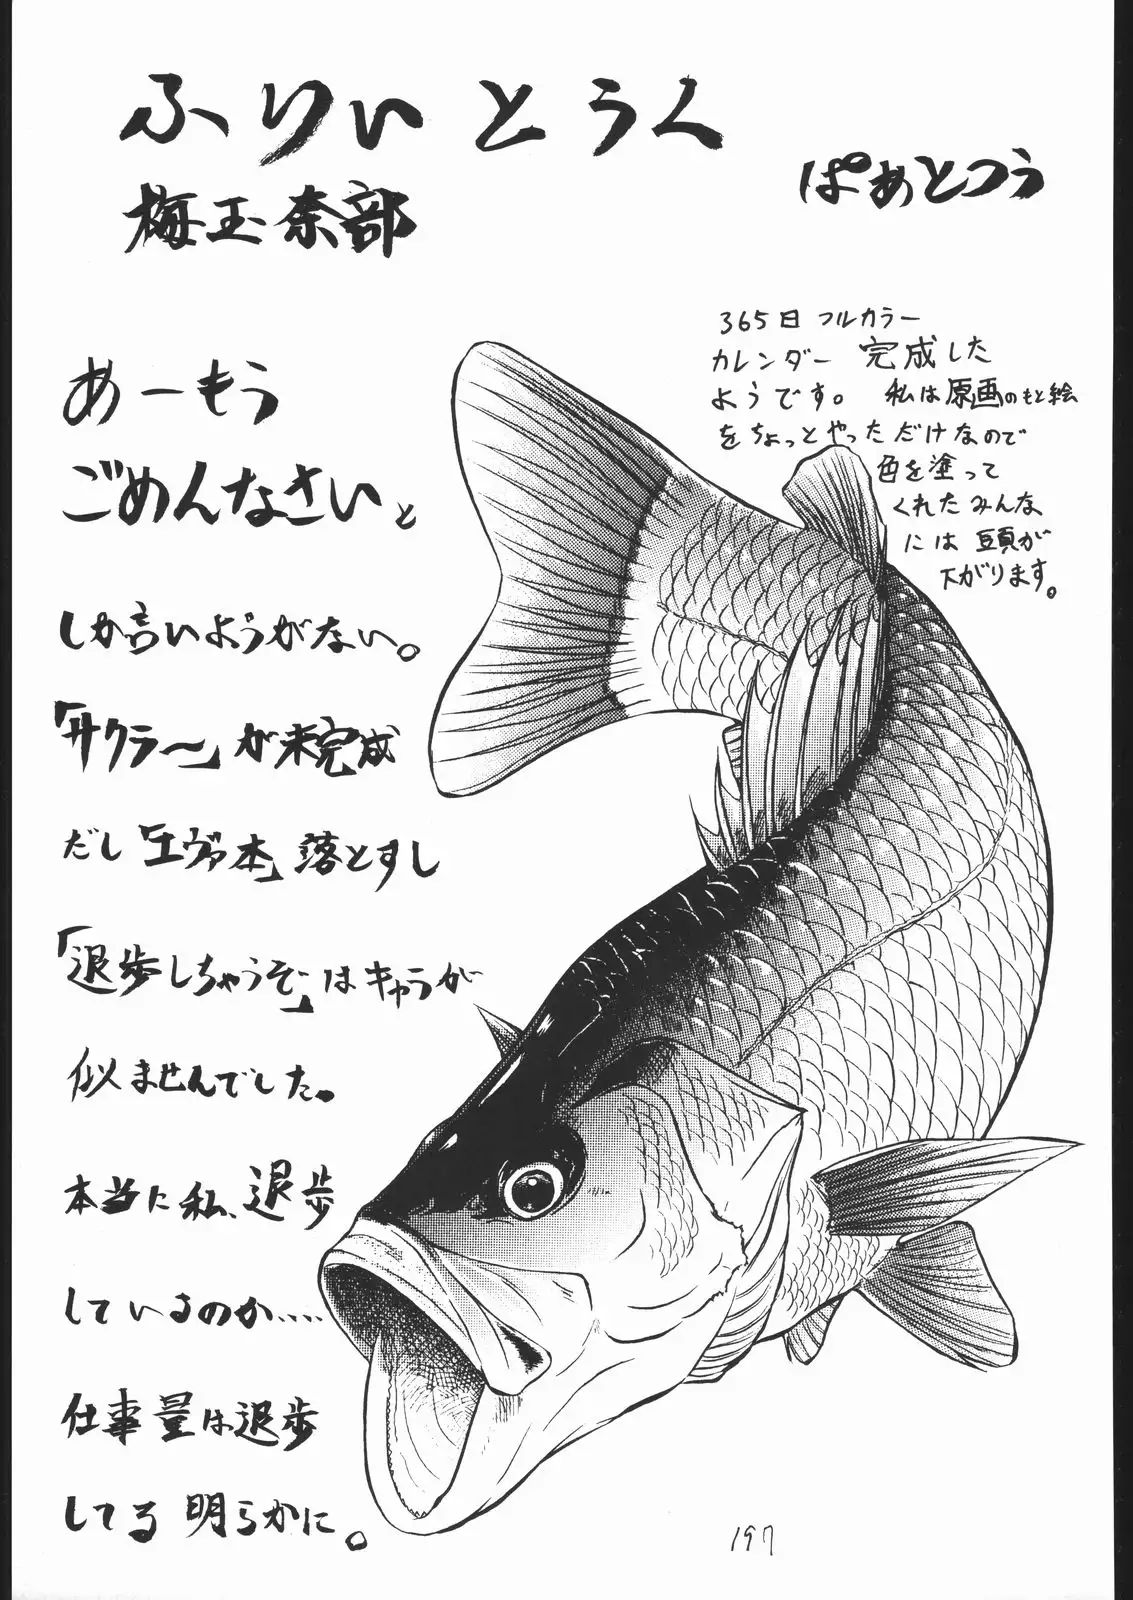 ふりぃとうく
ぱあとつう
梅玉奈部
365日 フルカラー
カレンダー 完成した
ようです。 私は原画のもと絵
をちょっとやっただけなので
色を塗って
くれたみんな
には 頭が
下がります。
あーもう
ごめんなさいと
しか言いようがない。
「サクラ〜」が未完成
だし「エヴァ本」落とすし
「退歩しちゃうぞ」はキャラが
似ませんでした。
本当に私、退歩
しているのか‥‥
仕事量は退歩
してる 明らかに。
197